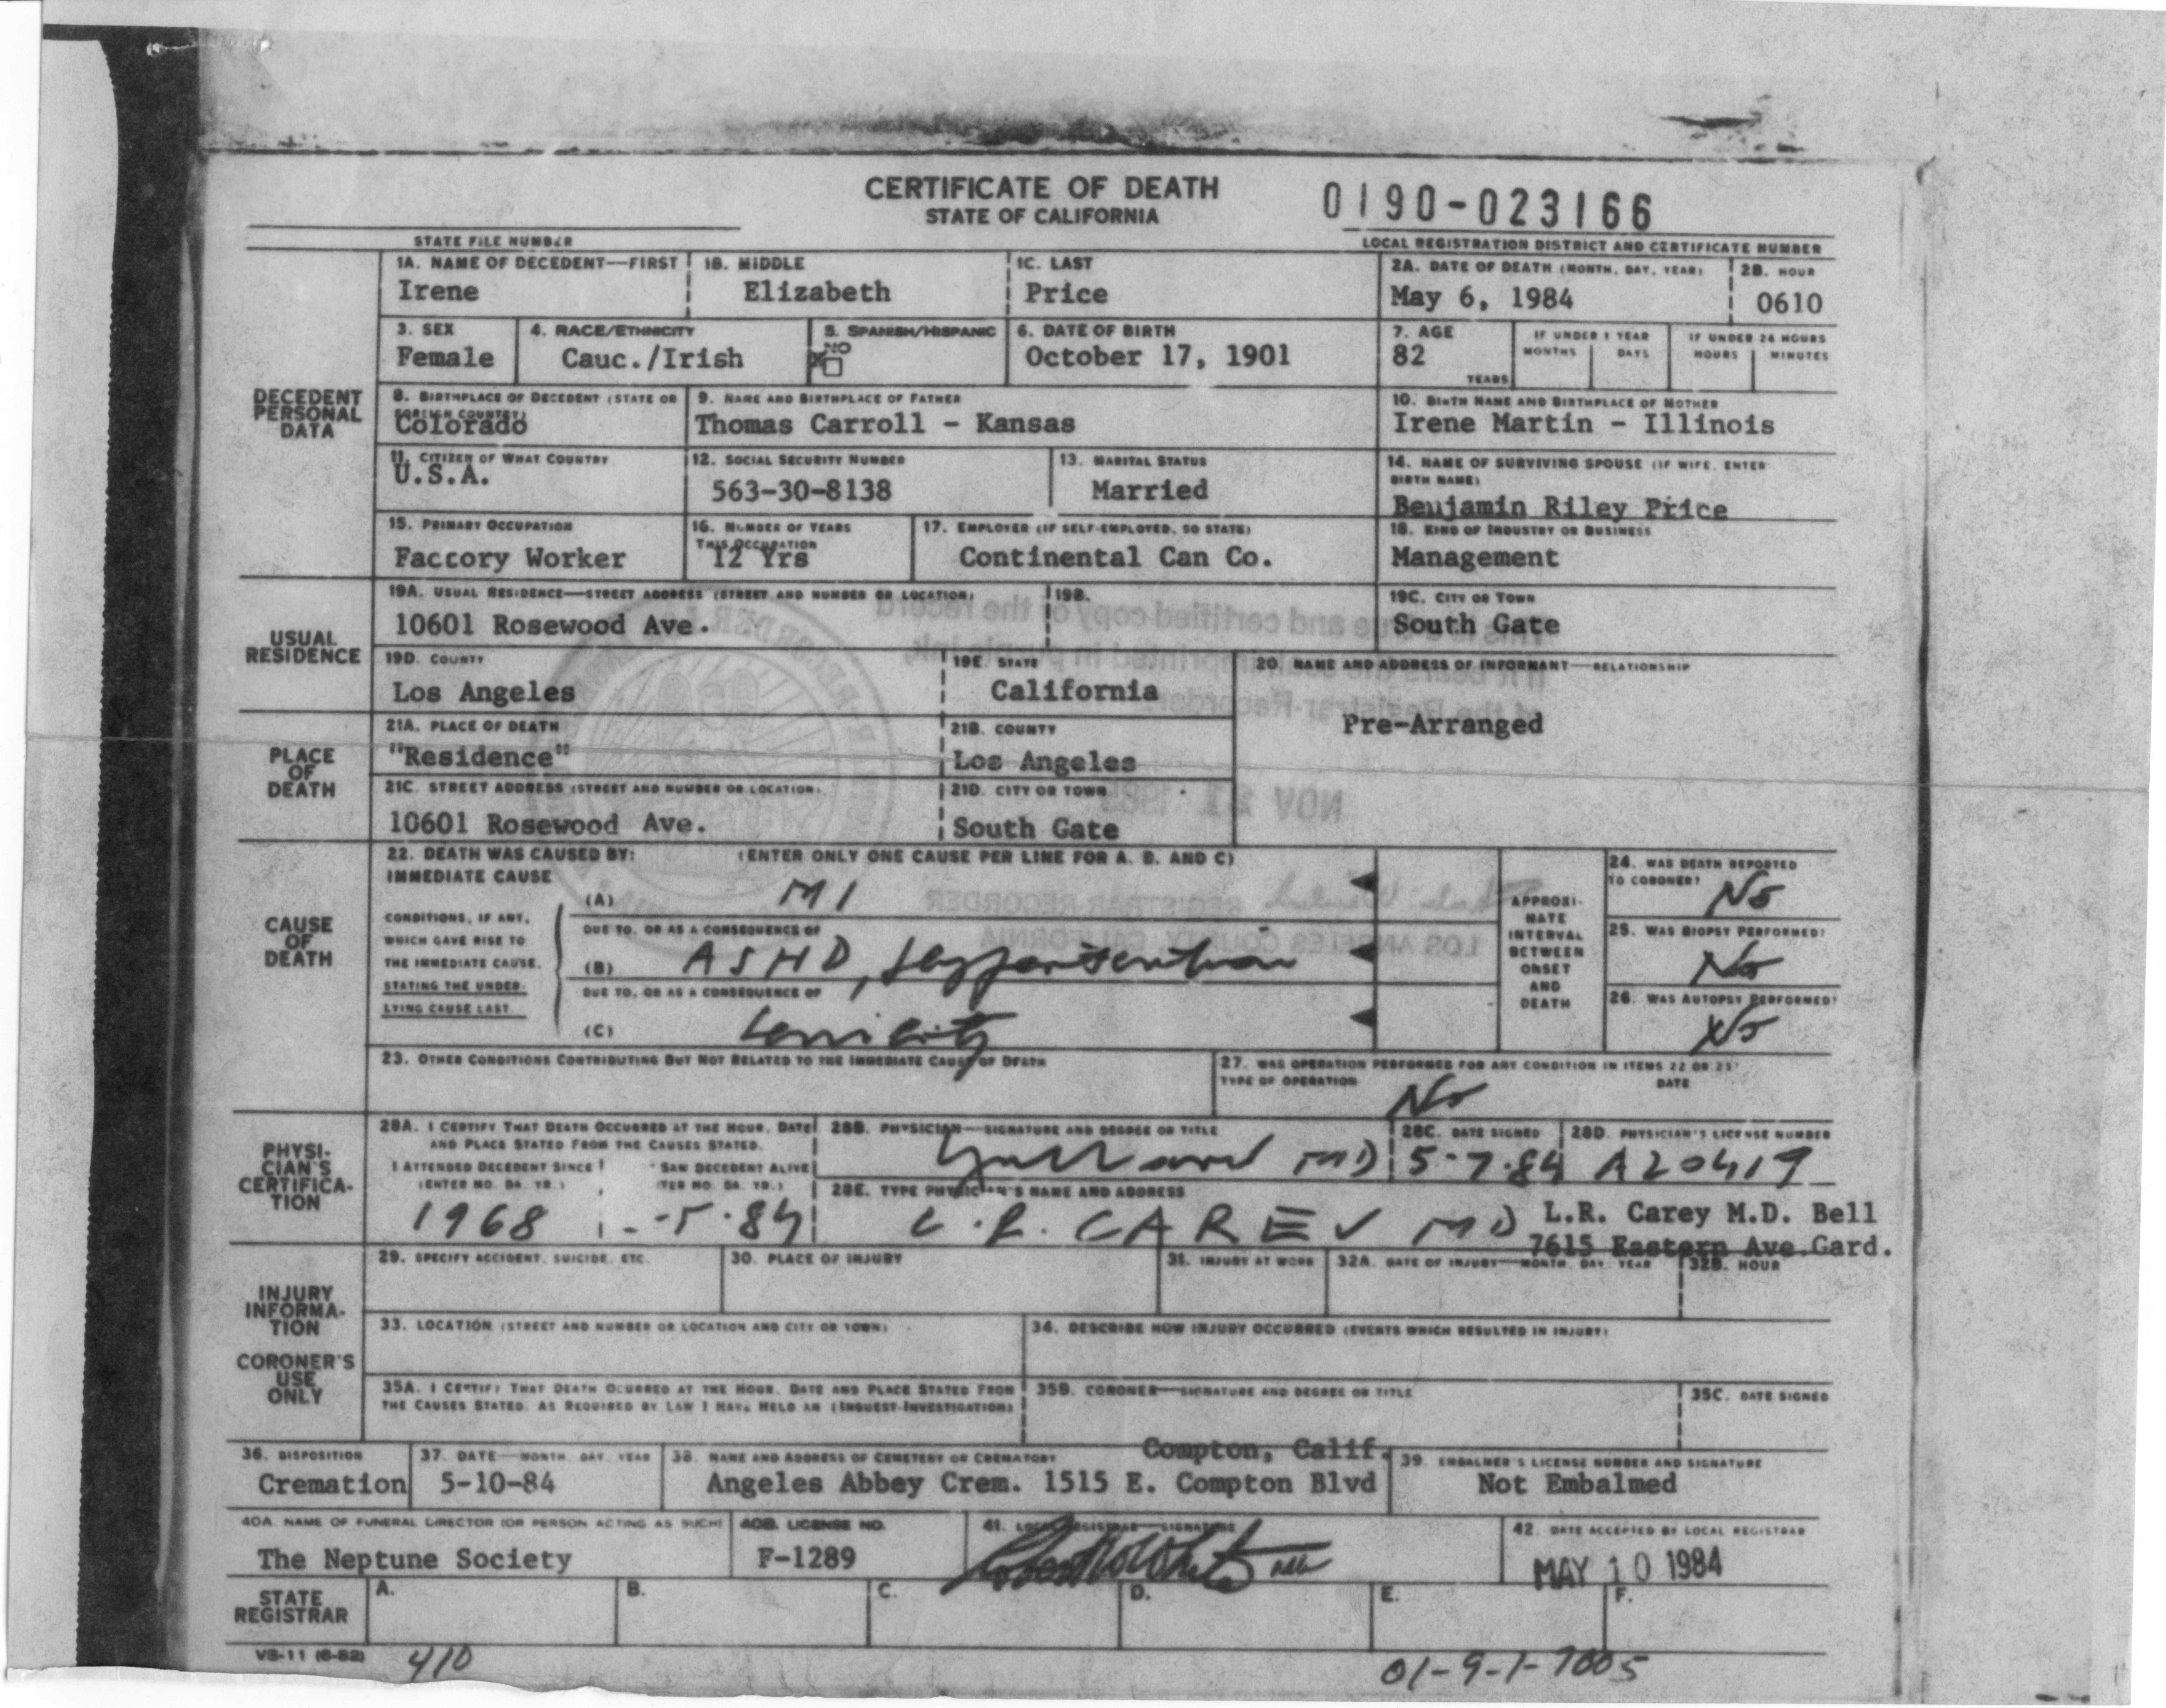 CERTIFICATE OF DEATH
STATE OF CALIFORNIA
0190-023166
STATE FILE NUMBER
LOCAL REGISTRATION DISTRICT AND CERTIFICATE NUMBER
DECEDENT PERSONAL DATA
1A. NAME OF DECEDENT—FIRST 1B. MIDDLE 1C. LAST 2A. DATE OF DEATH (MONTH, DAY, YEAR) 2B. HOUR
Irene Elizabeth Price May 6, 1984 0610
3. SEX 4. RACE/ETHNICITY 5. SPANISH/HISPANIC 6. DATE OF BIRTH 7. AGE IF UNDER 1 YEAR IF UNDER 24 HOURS
NO
MONTHS DAYS HOURS MINUTES
Female Cauc./Irish X October 17, 1901 82
YEARS
8. BIRTHPLACE OF DECEDENT (STATE OR FOREIGN COUNTRY) 9. NAME AND BIRTHPLACE OF FATHER 10. BIRTH NAME AND BIRTHPLACE OF MOTHER
Colorado Thomas Carroll - Kansas Irene Martin - Illinois
11. CITIZEN OF WHAT COUNTRY 12. SOCIAL SECURITY NUMBER 13. MARITAL STATUS 14. NAME OF SURVIVING SPOUSE (IF WIFE, ENTER BIRTH NAME)
U.S.A. 563-30-8138 Married Benjamin Riley Price
15. PRIMARY OCCUPATION 16. NUMBER OF YEARS THIS OCCUPATION 17. EMPLOYER (IF SELF-EMPLOYED, SO STATE) 18. KIND OF INDUSTRY OR BUSINESS
Factory Worker 12 Yrs Continental Can Co. Management
USUAL RESIDENCE
19A. USUAL RESIDENCE—STREET ADDRESS (STREET AND NUMBER OR LOCATION) 19B. 19C. CITY OR TOWN
10601 Rosewood Ave. South Gate
19D. COUNTY 19E. STATE 20. NAME AND ADDRESS OF INFORMANT—RELATIONSHIP
Los Angeles California
Pre-Arranged
PLACE OF DEATH
21A. PLACE OF DEATH 21B. COUNTY
"Residence" Los Angeles
21C. STREET ADDRESS (STREET AND NUMBER OR LOCATION) 21D. CITY OR TOWN
10601 Rosewood Ave. South Gate
CAUSE OF DEATH
22. DEATH WAS CAUSED BY: (ENTER ONLY ONE CAUSE PER LINE FOR A, B, AND C)
IMMEDIATE CAUSE
(A) MI
CONDITIONS, IF ANY, WHICH GAVE RISE TO THE IMMEDIATE CAUSE, STATING THE UNDERLYING CAUSE LAST
DUE TO, OR AS A CONSEQUENCE OF
(B) ASHD, Hypertention
DUE TO, OR AS A CONSEQUENCE OF
(C) Senility
APPROXIMATE INTERVAL BETWEEN ONSET AND DEATH
24. WAS DEATH REPORTED TO CORONER?
No
25. WAS BIOPSY PERFORMED?
No
26. WAS AUTOPSY PERFORMED?
No
23. OTHER CONDITIONS CONTRIBUTING BUT NOT RELATED TO THE IMMEDIATE CAUSE OF DEATH
27. WAS OPERATION PERFORMED FOR ANY CONDITION IN ITEMS 22 OR 23?
TYPE OF OPERATION DATE
No
PHYSICIAN'S CERTIFICATION
28A. I CERTIFY THAT DEATH OCCURRED AT THE HOUR, DATE AND PLACE STATED FROM THE CAUSES STATED.
I ATTENDED DECEDENT SINCE SAW DECEDENT ALIVE
(ENTER MO. DA. YR.) TER MO. DA. YR.)
1968 -5-84
28B. PHYSICIAN—SIGNATURE AND DEGREE OR TITLE 28C. DATE SIGNED 28D. PHYSICIAN'S LICENSE NUMBER
MD 5-7-84 A20419
28E. TYPE PHYSICIAN'S NAME AND ADDRESS
L.R. CAREY MD L.R. Carey M.D. Bell
7615 Eastern Ave. Gard.
INJURY INFORMATION
CORONER'S USE ONLY
29. SPECIFY ACCIDENT, SUICIDE, ETC. 30. PLACE OF INJURY 31. INJURY AT WORK 32A. DATE OF INJURY—MONTH, DAY, YEAR 32B. HOUR
33. LOCATION (STREET AND NUMBER OR LOCATION AND CITY OR TOWN) 34. DESCRIBE HOW INJURY OCCURRED (EVENTS WHICH RESULTED IN INJURY)
35A. I CERTIFY THAT DEATH OCURRED AT THE HOUR, DATE AND PLACE STATED FROM THE CAUSES STATED, AS REQUIRED BY LAW I HAVE HELD AN (INQUEST-INVESTIGATION)
35B. CORONER—SIGNATURE AND DEGREE OR TITLE 35C. DATE SIGNED
36. DISPOSITION 37. DATE—MONTH, DAY, YEAR 38. NAME AND ADDRESS OF CEMETERY OR CREMATORY Compton, Calif. 39. EMBALMER'S LICENSE NUMBER AND SIGNATURE
Cremation 5-10-84 Angeles Abbey Crem. 1515 E. Compton Blvd Not Embalmed
40A. NAME OF FUNERAL DIRECTOR (OR PERSON ACTING AS SUCH) 40B. LICENSE NO. 41. LOCAL REGISTRAR—SIGNATURE 42. DATE ACCEPTED BY LOCAL REGISTRAR
The Neptune Society F-1289 MAY 10 1984
STATE REGISTRAR
A. B. C. D. E. F.
VS-11 (6-82) 410 01-9-1-7005